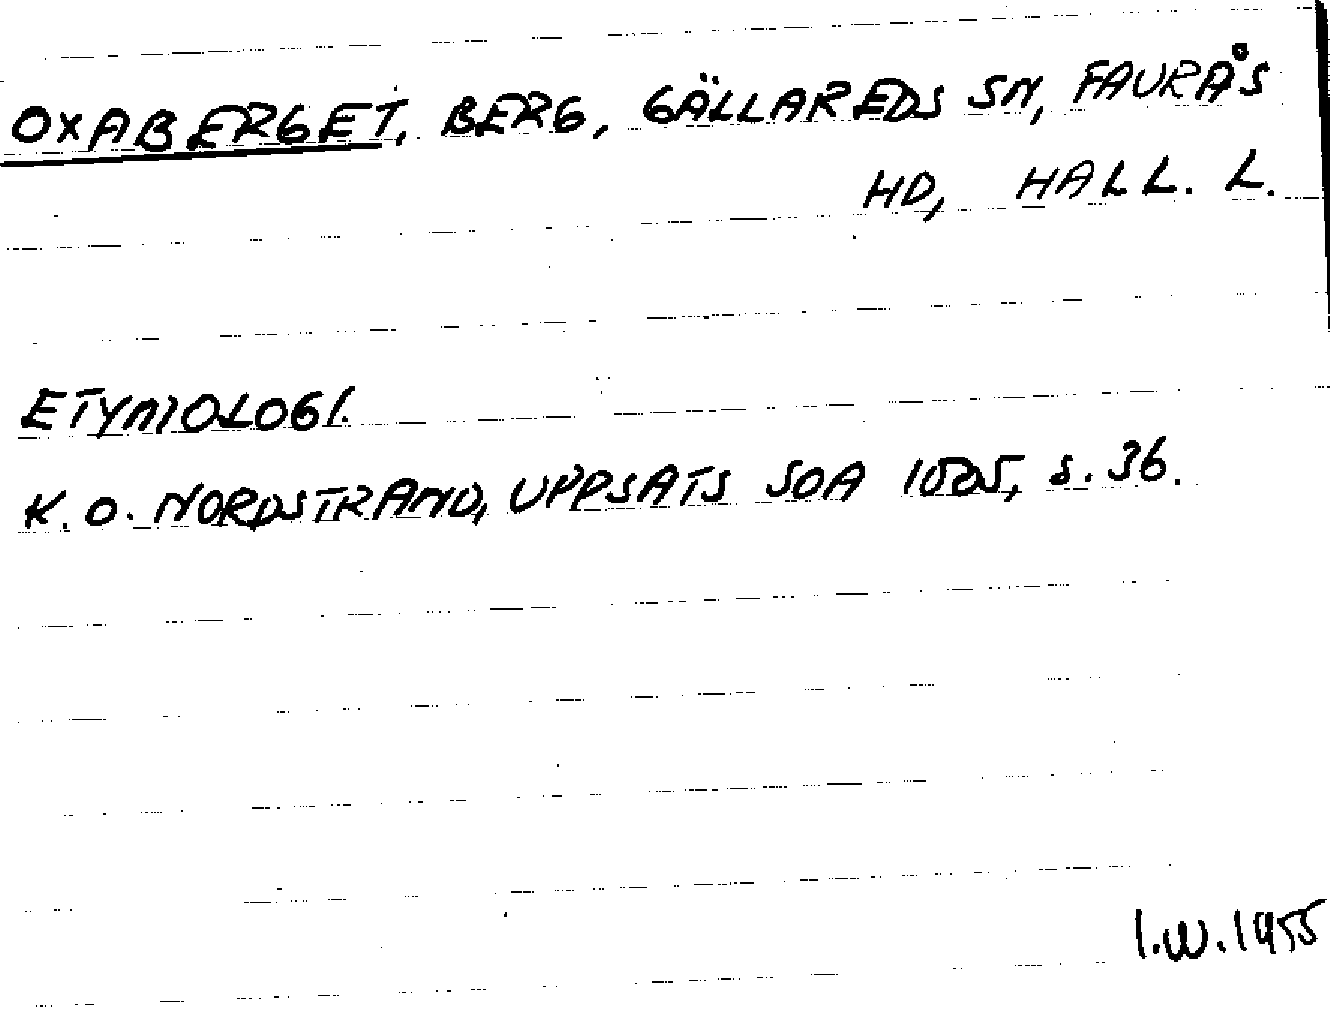 OXABERGET, BERG, GÄLLAREDS SN, FAURÅS
HD, HALL. L.
ETYMOLOGI.
K. O. NORDSTRAND, UPPSATS SOA s. 36.
I.W. 1955